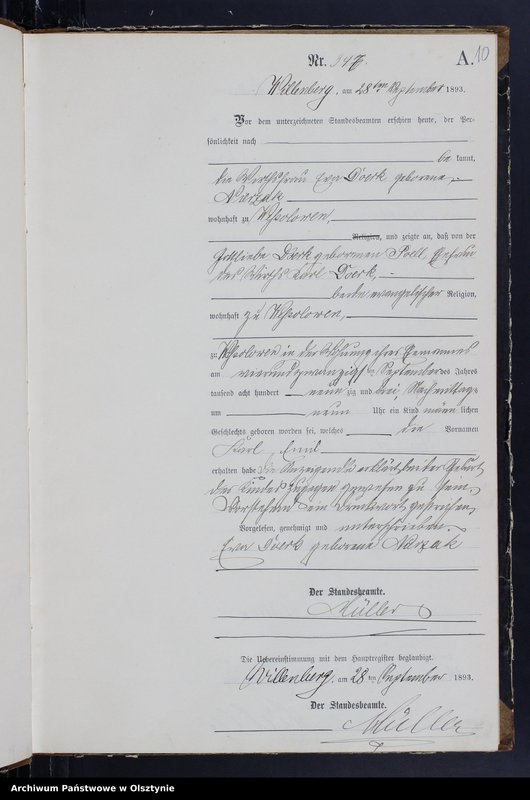 A. 10
Nr. 347.
Willenberg, am 28ten September 1893.
Vor dem unterzeichneten Standesbeamten erschien heute, der Per-
sönlichkeit nach
be kannt,
die Wirthsfrau Eva Doerk geborene
Narzak
wohnhaft zu Wessolowen,
Religion, und zeigte an, daß von der
Gottliebe Doerk geborenen Ehefrau
des Wirths Karl Doerk,
beide evangelischer Religion,
wohnhaft zu Wessolowen,
zu Wessolowen in der Wohnung ihres Ehemannes
am vierundzwanzigsten September des Jahres
tausend acht hundert neunzig und drei, Nachmittags
um neun Uhr ein Kind männlichen
Geschlechts geboren worden sei, welches die Vornamen
Karl Emil
erhalten habe. Die Anzeigende erklärt bei der Geburt
des Kindes zugegen gewesen zu sein.
Vorstehend ein Druckwort gestrichen.
Vorgelesen, genehmigt und unterschrieben.
Eva Doerk geborene Narzak
Der Standesbeamte.
Müller
Die Uebereinstimmung mit dem Hauptregister beglaubigt.
Willenberg, am 28ten September 1893.
Der Standesbeamte.
Müller
Archiwum Państwowe w Olsztynie